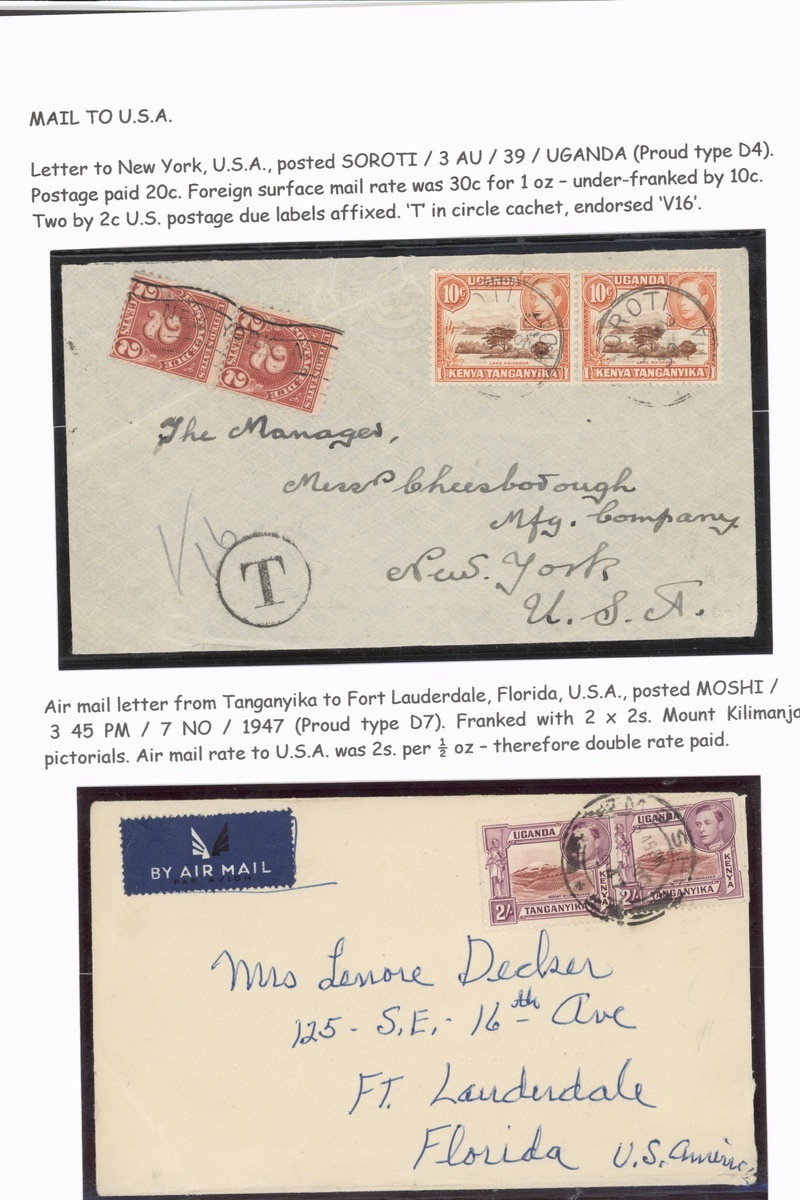 MAIL TO U.S.A.
Letter to New York, U.S.A., posted SOROTI / 3 AU / 39 / UGANDA (Proud type D4).
Postage paid 20c. Foreign surface mail rate was 30c for 1 oz – under-franked by 10c.
Two by 2c U.S. postage due labels affixed. 'T' in circle cachet, endorsed 'V16'.
2 2
UGANDA UGANDA
10c 10c
SOROTI
KENYA TANGANYIKA KENYA TANGANYIKA
The Manager,
Messrs Cheesborough
Mfg. Company
New. York
U. S. A.
V16
T
Air mail letter from Tanganyika to Fort Lauderdale, Florida, U.S.A., posted MOSHI /
3 45 PM / 7 NO / 1947 (Proud type D7). Franked with 2 x 2s. Mount Kilimanja
pictorials. Air mail rate to U.S.A. was 2s. per ½ oz – therefore double rate paid.
BY AIR MAIL
PAR AVION
UGANDA UGANDA
KENYA KENYA
2/- TANGANYIKA 2/- TANGANYIKA
Mrs Lenore Decker
125 - S.E. - 16th Ave
FT. Lauderdale
Florida U.S. America